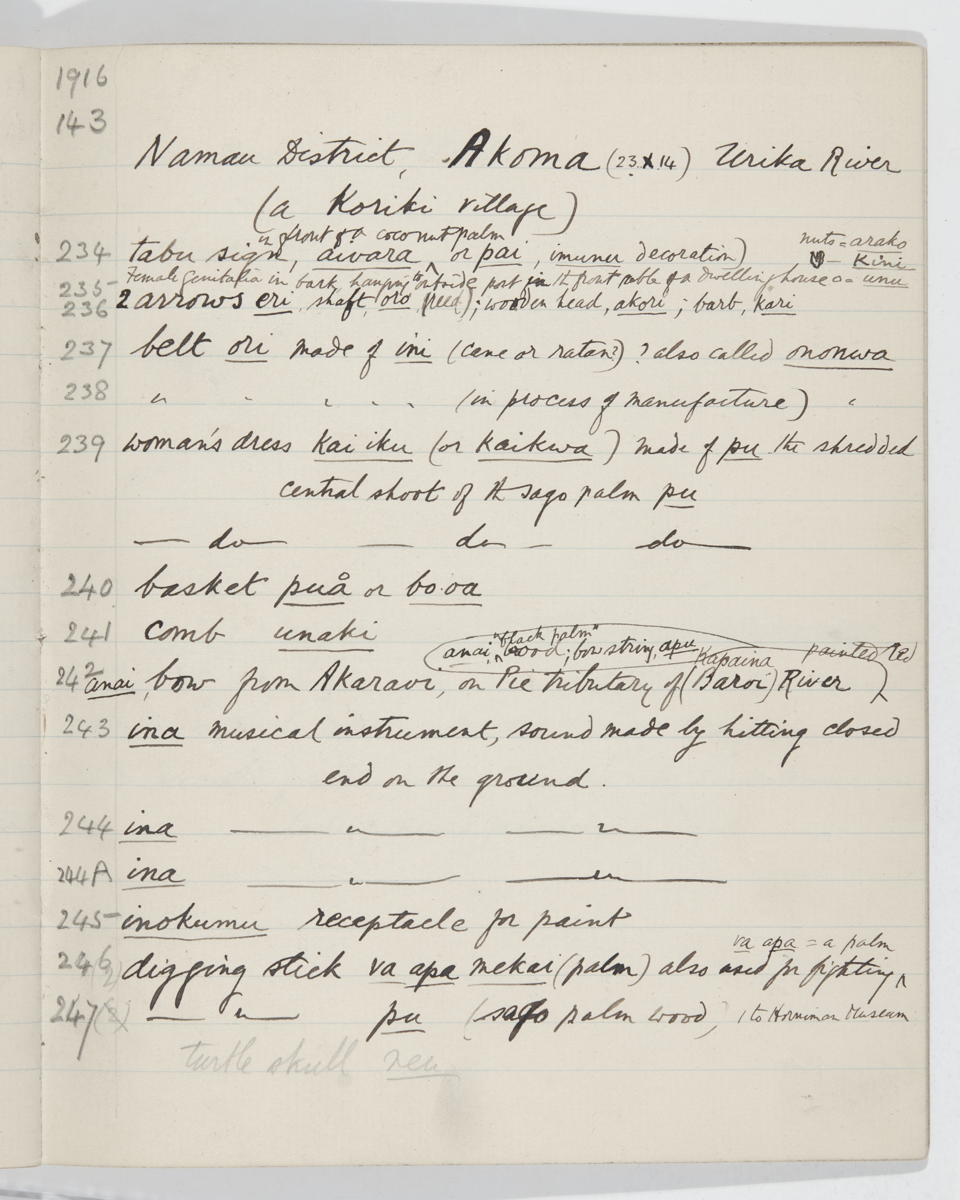 1916
143
Namau District, Akoma (23.X.14) Urika River
(a Koriki village)
in front of a coconut palm
nuts = arako
234 tabu sign, aivara or pai, imuner decoration) = Kini
235 Female genitalia in bark, hanging to outside post in the front gable of a dwelling house = unu
236 2 arrows eri, shaft, oro (reed); wooden head, akori; barb, kari
237 belt ori made of ini (cane or ratan?) ? also called ononwa
238 " " " " " (in process of manufacture) "
239 woman's dress kai iku (or kaikwa) made of pu the shredded
central shoot of the sago palm pu
— do — — do — do —
240 basket puå or bo.oa
241 comb unaki
anai, "black palm" wood; bow string, apu painted red
242 anai, bow from Akaravi, on Pie tributary of (Baroi) River
Kapaina
243 ina musical instrument, sound made by hitting closed
end on the ground.
244 ina — " — — " —
244A ina — " — — " —
245 inokumu receptacle for paint
va apa = a palm
246 digging stick va apa mekai (palm) also used for fighting
247 (8) — " — pu (sago palm wood) 1 to Horniman Museum
turtle skull neu